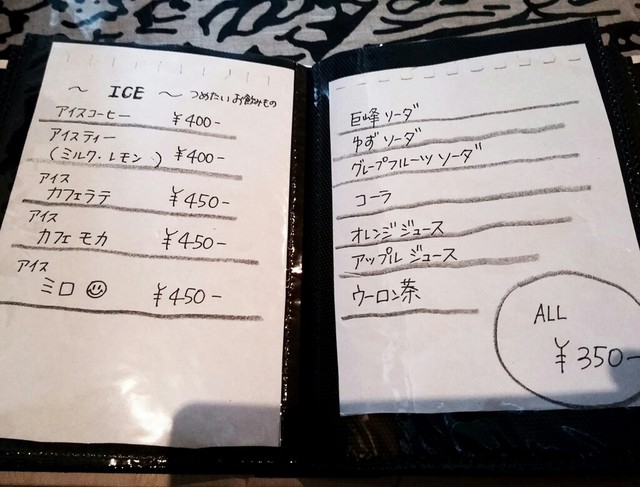 ～ ICE ～ つめたいお飲みもの
アイスコーヒー ¥400-
アイスティー
(ミルク・レモン) ¥400-
アイス
カフェラテ ¥450-
アイス
カフェモカ ¥450-
アイス
ミロ ¥450-
巨峰ソーダ
ゆずソーダ
グレープフルーツソーダ
コーラ
オレンジジュース
アップルジュース
ウーロン茶
ALL
¥350-